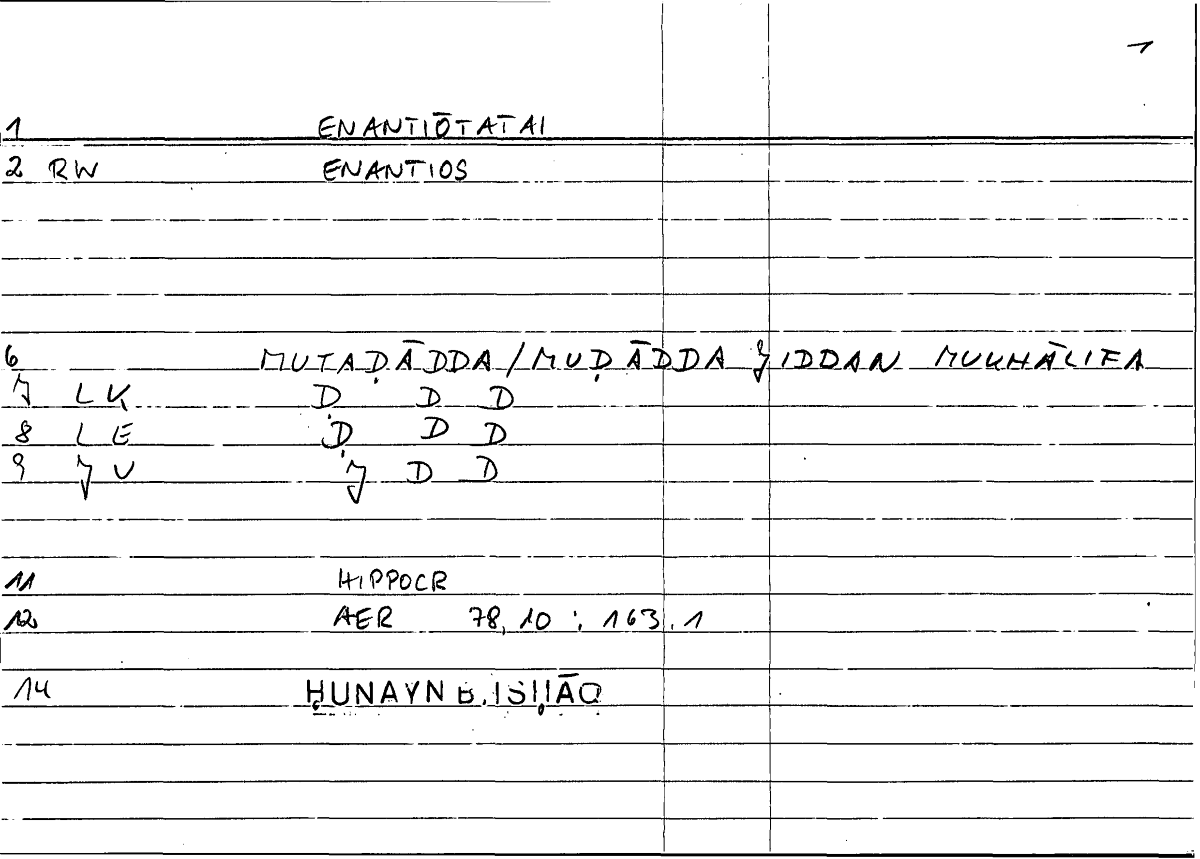 1
1 ENANTIŌTATAI
2 RW ENANTIOS
6 MUTAḌĀDDA/MUḌĀDDA JIDDAN MUKHĀLIFA
7 LK Ḍ D D
8 LE Ḍ D D
9 JU J D D
11 HIPPOCR
12 AER 78,10 : 163.1
14 ḤUNAYN B. ISḤĀQ